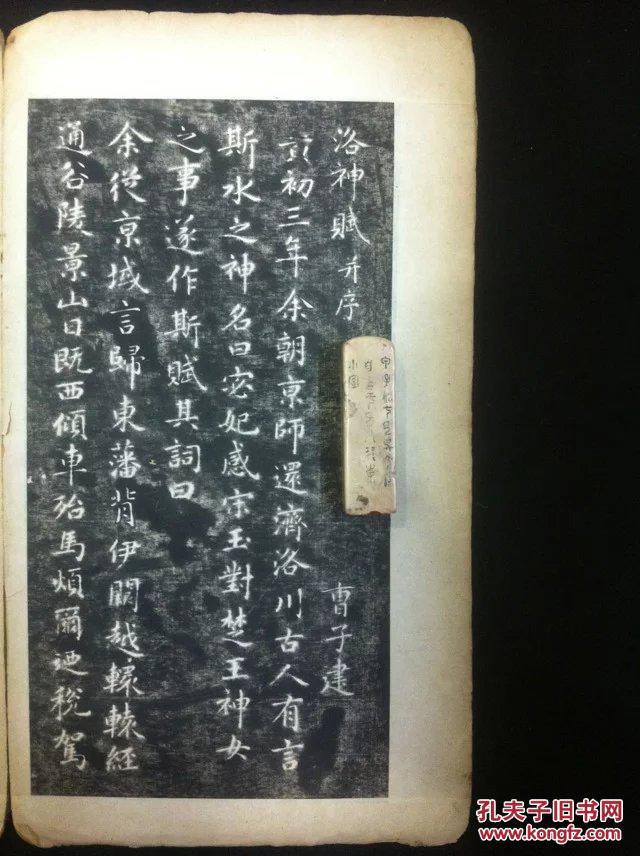 洛神賦 并序
曹子建
黃初三年余朝京師還濟洛川古人有言
斯水之神名曰宓妃感宋玉對楚王神女
之事遂作斯賦其詞曰
余從京域言歸東藩背伊闕越轘轅經
通谷陵景山日既西傾車殆馬煩爾迺稅駕
孔夫子旧书网
www.kongfz.com